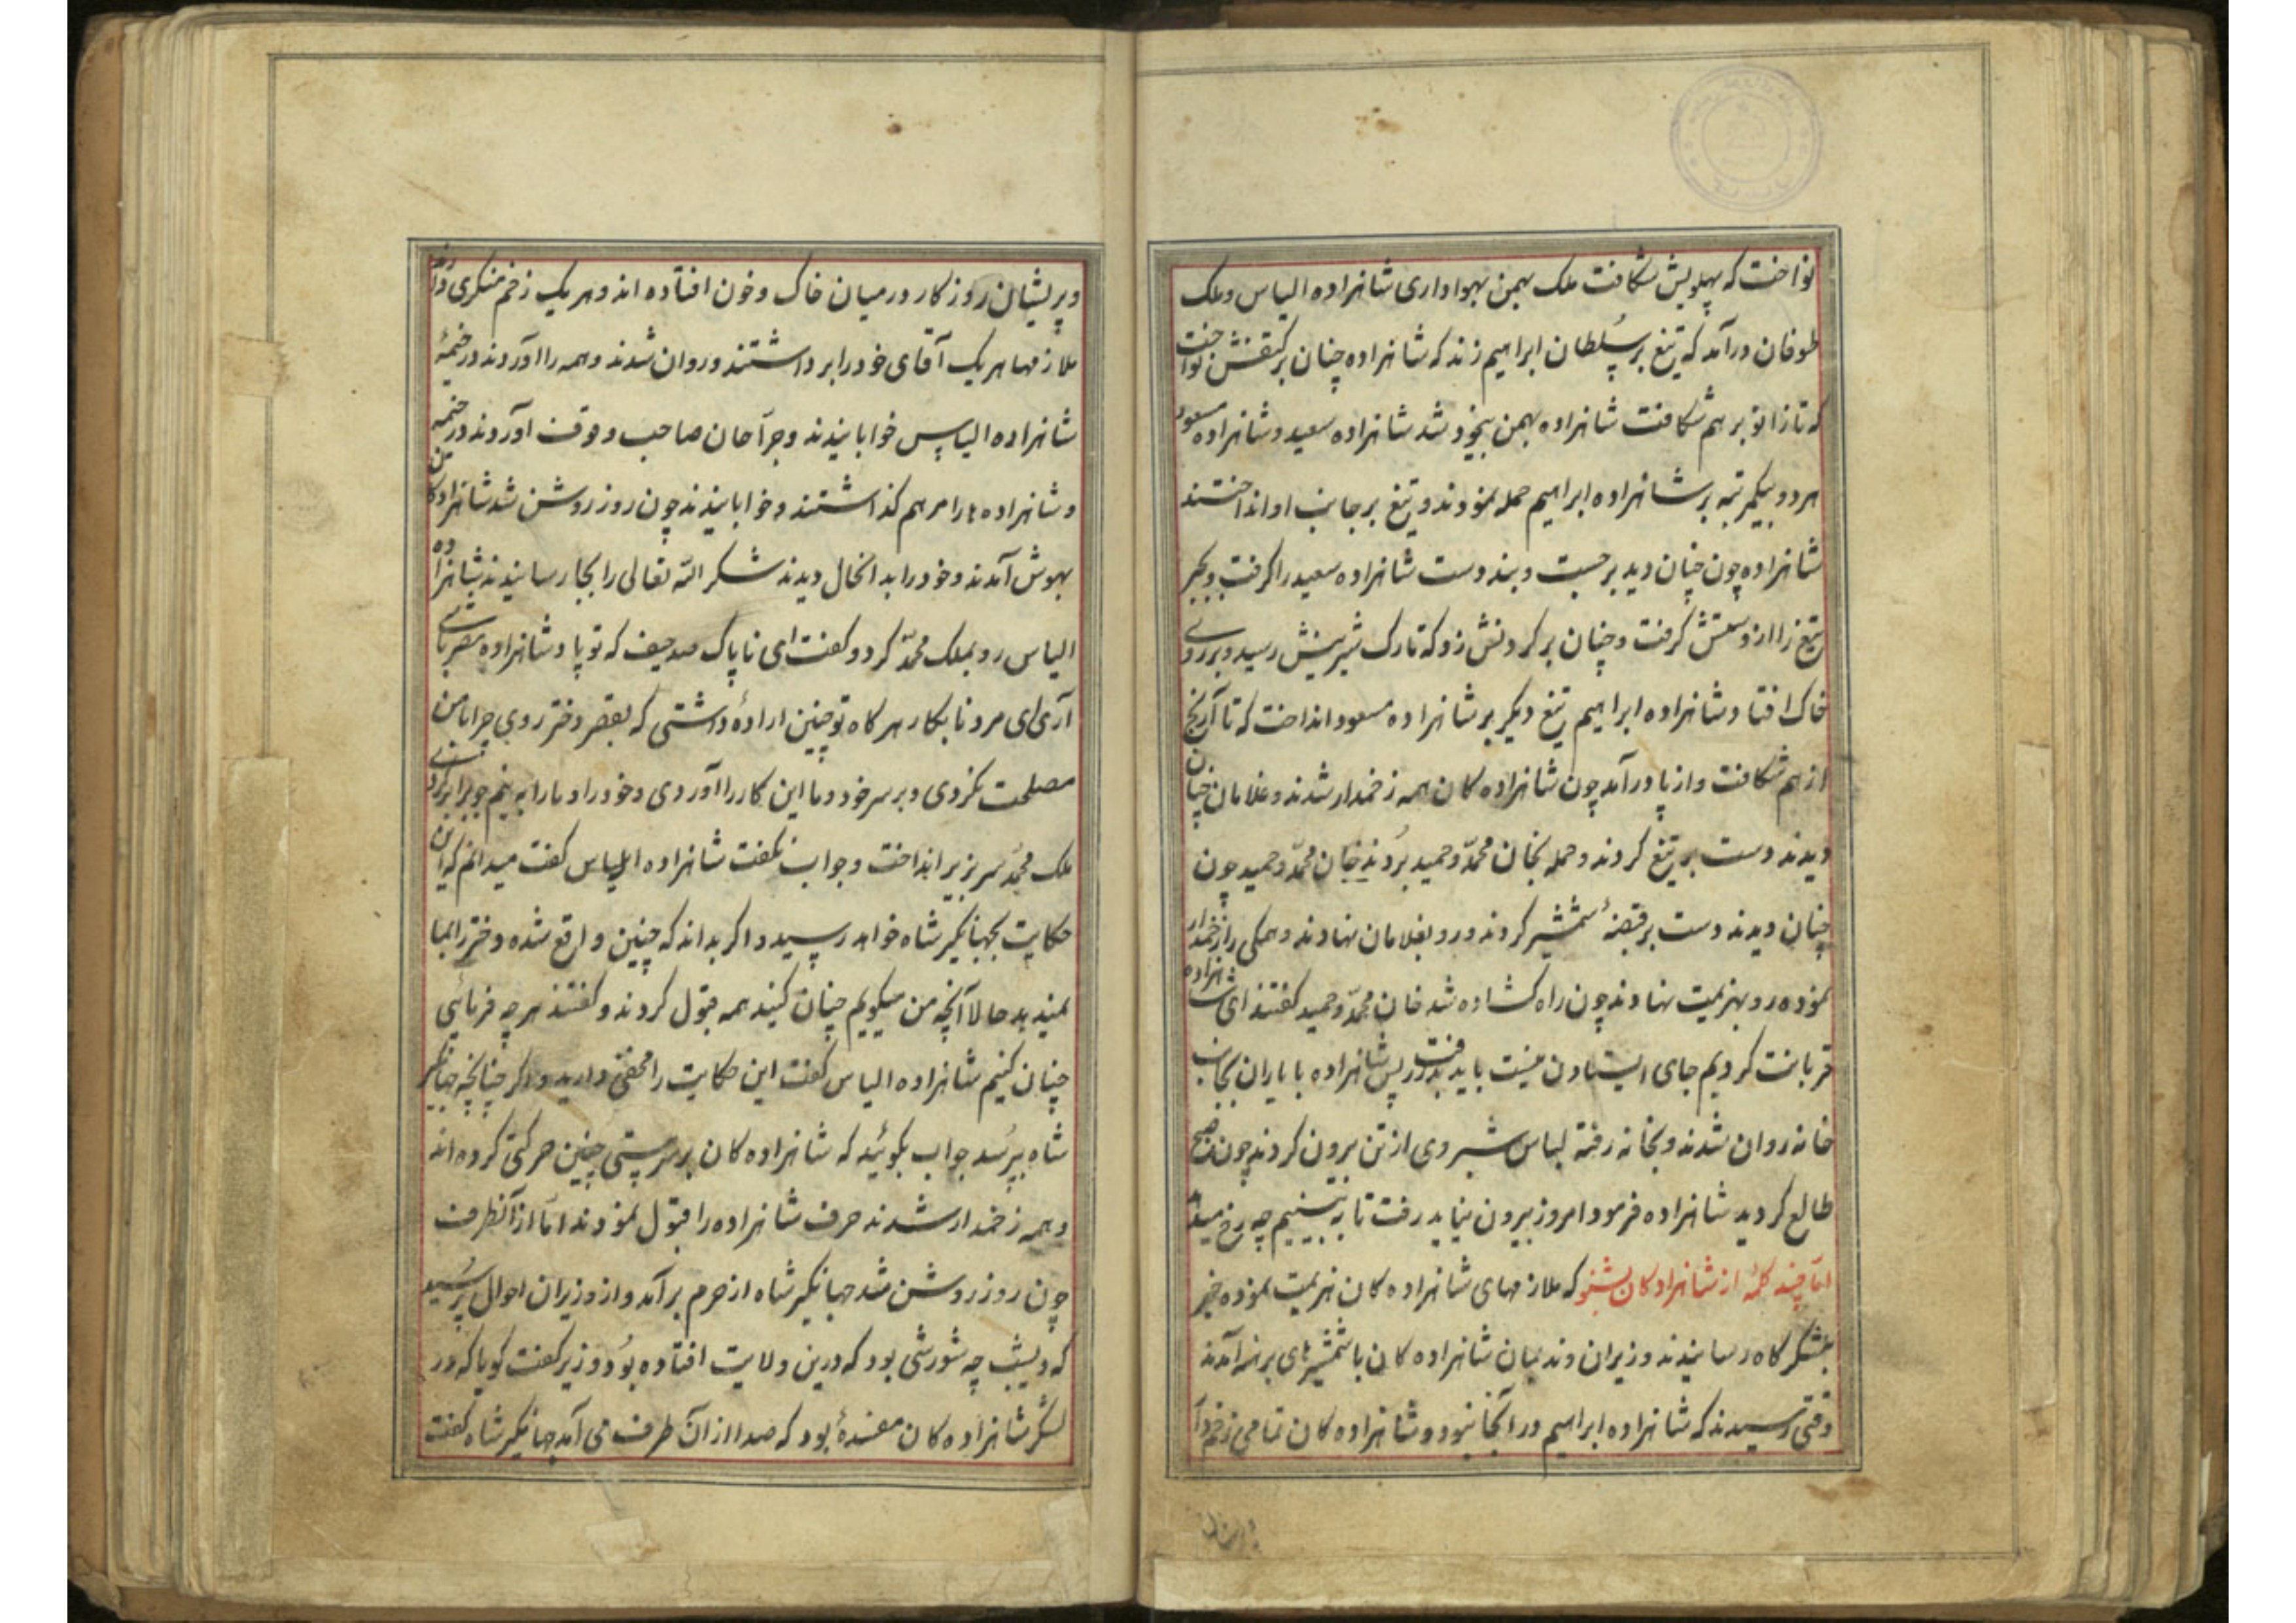 نواخت که پهلویش شکافت ملک بهمن بهواداری شاهزاده الیاس و ملک
طوفان درآمد که تیغ بر سلطان ابراهیم زند که شاهزاده چنان بر کتفش نواخت
که تا زانو بر هم شکافت شاهزاده بهمن بیخود شد شاهزاده سعید و شاهزاده مسعود
هر دو بیکمرتبه بر شاهزاده ابراهیم حمله نمودند و تیغ بر جانب او انداختند
شاهزاده چون چنان دید بر جست و بند دست شاهزاده سعید را گرفت و بجبر
تیغ را از دستش گرفت و چنان بر گردنش زد که تارک شیرینش رسید و بر روی
خاک افتاد و شاهزاده ابراهیم تیغ دیگر بر شاهزاده مسعود انداخت که تا آرنج
از هم شکافت و از پا درآمد چون شاهزاده کان همه زخمدار شدند و غلامان چنان
دیدند دست بر تیغ کردند و حمله بخان محمّد و حمید بُردند خان محمّد و حمید چون
چنان دیدند دست بر قبضهٔ شمشیر کردند و رو بغلامان نهادند و همکی را زخمدار
نموده رو بهزیمت نهادند چون راه کشاده شد خان محمّد و حمید کفتند ای شاهزاده
قربانت کردیم جای ایستادن نیست باید بدر رفت پس شاهزاده با یاران بجانب
خانه روان شدند و بخانه رفته لباس شبروی از تن بیرون کردند چون صبح
طالع کردید شاهزاده فرمود امروز بیرون نباید رفت تا به بینیم چه رخ میدهد
امّا چند کلمهٔ از شاهزاده کان بشنو که ملازمهای شاهزاده کان هزیمت نموده خبر
بلشکرکاه رسانیدند وزیران و ندیمان شاهزاده کان با شمشیرهای برهنه آمدند
وقتی رسیدند که شاهزاده ابراهیم در آنجا نبود و شاهزاده کان تمامی زخم دار
و پریشان روزکار در میان خاک و خون افتاده اند و هر یک زخم منکری دارند
ملازمها هر یک آقای خود را بر داشتند و روان شدند و همه را آوردند در خیمهٔ
شاهزاده الیاس خوابانیدند و جرّاحان صاحب وقوف آوردند در خیمه
و شاهزاده ها را مرهم کذاشتند و خوابانیدند چون روز روشن شد شاهزاده کان
بهوش آمدند و خود را بدانحال دیدند شکر الله تعالی را بجا رسانیدند شاهزاده
الیاس رو بملک محمّد کرد و کفت ای ناپاک صد حیف که تو پادشاهزاده مصر باشی
آری ای مرد نابکار هر کاه تو چنین ارادهٔ داشتی که بقصر دختر روی چرا با من
مصلحت نکردی و بر سر خود و ما این کار را آوردی و خود را و ما را به نیم جو برابر کردی
ملک محمّد سر بزیر انداخت و جواب نکفت شاهزاده الیاس کفت میدانم که این
حکایت بجهانکیر شاه خواهد رسید و اکر بداند که چنین واقع شده دختر را بما
نمیدهد حالا آنچه من میکویم چنان کنید همه قبول کردند و کفتند هر چه فرمائی
چنان کنیم شاهزاده الیاس کفت این حکایت را مخفی دارید و اکر چنانچه جهانکیر
شاه بپرسد جواب بکوئید که شاهزاده کان بر سر مستی چنین حرکتی کرده اند
و همه زخمدار شدند حرف شاهزاده را قبول نمودند امّا از آنطرف
چون روز روشن شد جهانکیر شاه از حرم برآمد و از وزیران احوال پرسید
که دیشب چه شورشی بود که درین ولایت افتاده بود وزیر کفت کویا که در
لشکر شاهزاده کان مفسدهٔ بود که صدا از آن طرف می آمد جهانکیر شاه کفت